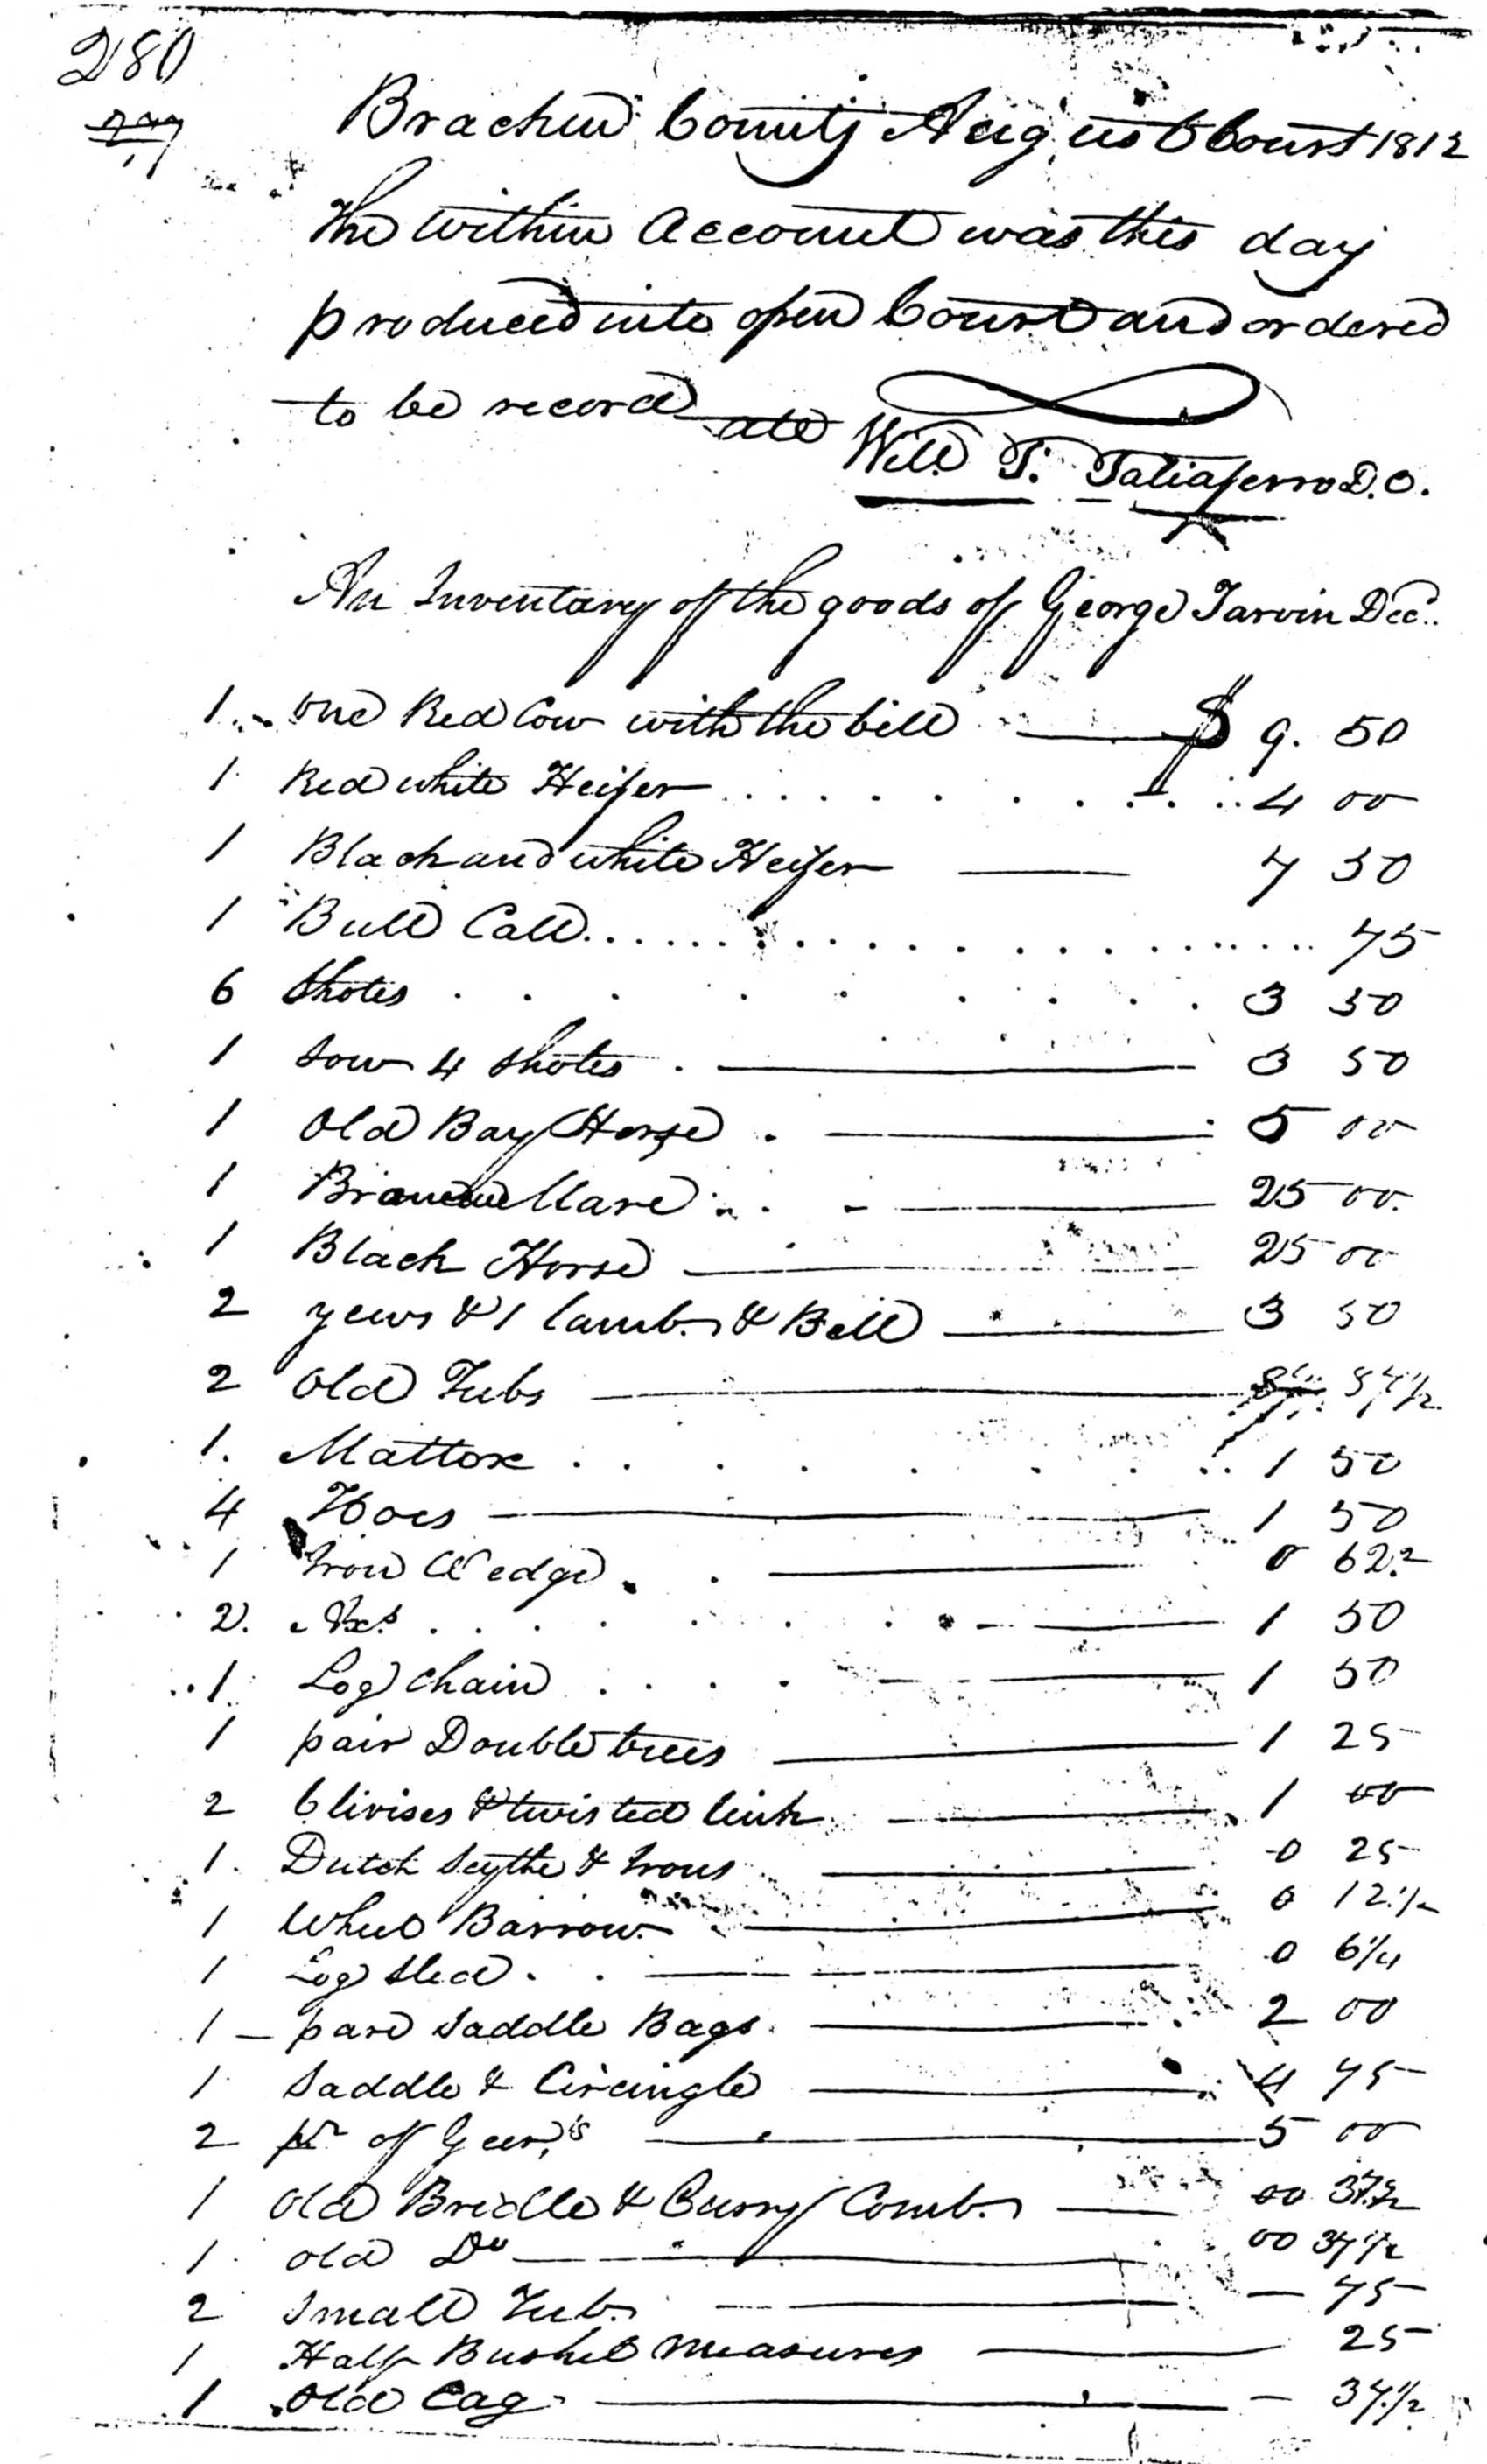 280
Bracken County August Court 1812
The within account was this day
produced into open Court and ordered
to be record
att Will T. Taliaferro D.C.
An Inventary of the goods of George Tarvin Decd.
1 one Red Cow with the bell $ 9. 50
1 Red white Heifer 4 00
1 Black and white Heifer 7 50
1 Bull Call 75
6 Shotes 3 50
1 Sow 4 Shotes 3 50
1 Old Bay Horse 5 00
1 Mare 25 00
1 Black Horse 25 00
2 yews & 1 lamb & Bell 3 50
2 Old Tubs
1. Mattox 1 50
4 Hoes 1 50
1 Iron Wedge 0 62.2
2. Axs 1 50
1 Log Chain 1 50
1 pair Double trees 1 25
2 Clivises & twisted link 1 00
1. Dutch Scythe & Irons 0 25
1 Wheel Barrow 0 12 1/2
1 Log Sled 0 6 1/4
1 pare Saddle Bags 2 00
1 Saddle & Circingle 4 75
2 pr of Geer,s 5 00
1 Old Bridle & Curry Comb 00 37 1/2
1 old Do 00 37 1/2
2 Small Tub 75
1 Half Bushel Measures 25
1 Old Cag 37 1/2